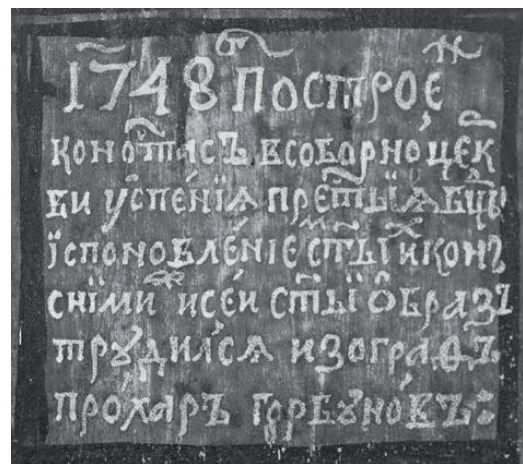 1748 Построе
коноⷭ҇тасъ в соборно цеⷬ҇к
ви ᲂу҆спе́нїѧ прест҃ы́ѧ бцⷣы
ї спономвле́нїе ст҃ы́хъ икон
с ни́ми и сей ст҃ы́й ѻ҆браз
трꙋди́лсѧ изогра́фъ
про́харъ горбꙋно́въ: